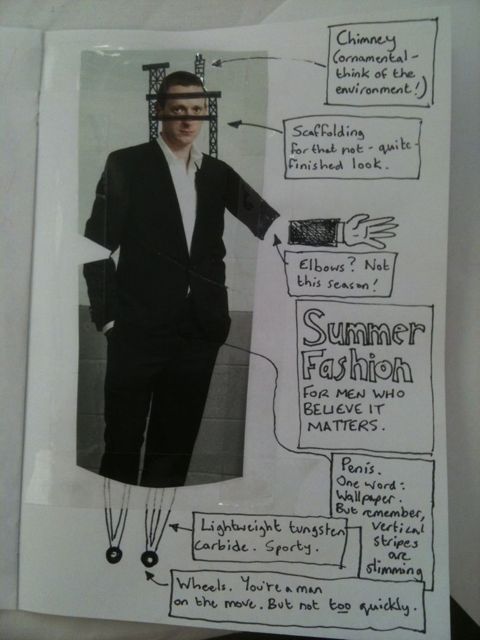 Chimney
(ornamental -
think of the
environment!)
Scaffolding
for that not - quite -
finished look.
Elbows? Not
this season!
Summer
Fashion
FOR MEN WHO
BELIEVE IT
MATTERS.
Penis.
One word:
Wallpaper.
But remember,
vertical
stripes
are
slimming
Lightweight tungsten
carbide. Sporty.
Wheels. You're a man
on the move. But not too quickly.